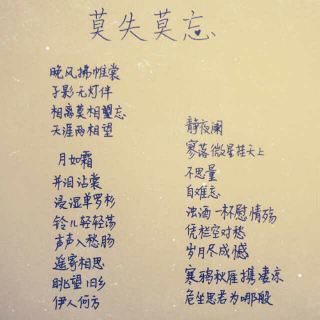 莫失莫忘
晚风拂帷裳
孑影无灯伴
相离莫相望忘
天涯两相望
月如霜
并泪沾裳
浸湿单罗衫
铃儿轻轻荡
声声入愁肠
遥寄相思
眺望旧乡
伊人何方
静夜阑
寥落微星挂天上
不思量
自难忘
浊酒一杯慰情殇
凭栏空对愁
岁月尽成憾
寒鸦秋雁携凄凉
危坐思君为哪般